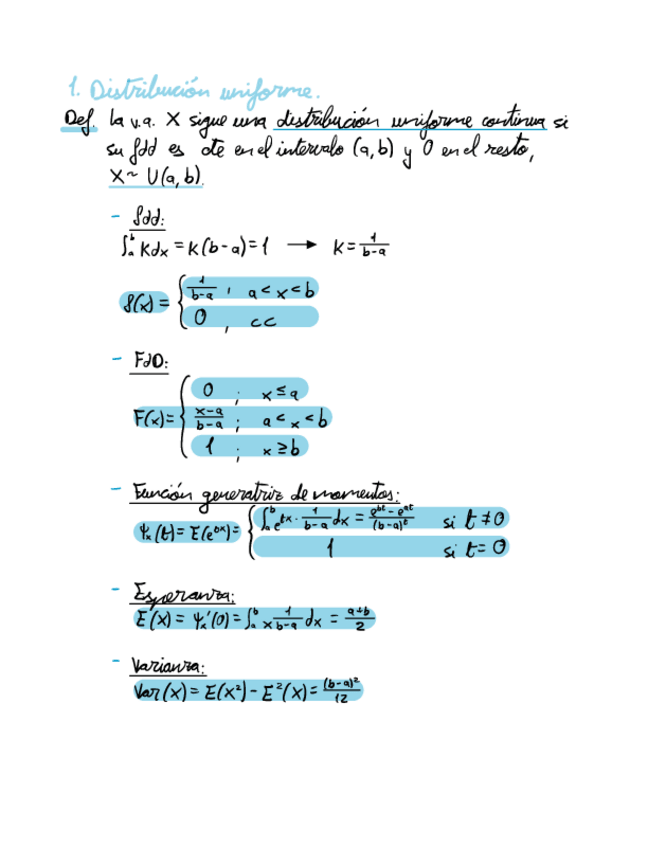 1. Distribución uniforme.
Def. La v.a. X sigue una distribución uniforme continua si
su fdd es cte en el intervalo (a,b) y 0 en el resto,
X~ U(a,b).
- fdd:
∫ₐᵇ Kdx = K(b-a) = 1 → K = 1/(b-a)
f(x) = { 1/(b-a) , a < x < b
0 , cc
- FdD:
F(x) = { 0 ; x ≤ a
(x-a)/(b-a) ; a < x < b
1 ; x ≥ b
- Función generatriz de momentos:
ψₓ(t) = E(eᵗˣ) = { ∫ₐᵇ eᵗˣ · 1/(b-a) dx = (eᵇᵗ - eᵃᵗ)/((b-a)t) si t ≠ 0
1 si t = 0
- Esperanza:
E(x) = ψₓ'(0) = ∫ₐᵇ x 1/(b-a) dx = (a+b)/2
- Varianza:
Var(x) = E(x²) - E²(x) = (b-a)²/12